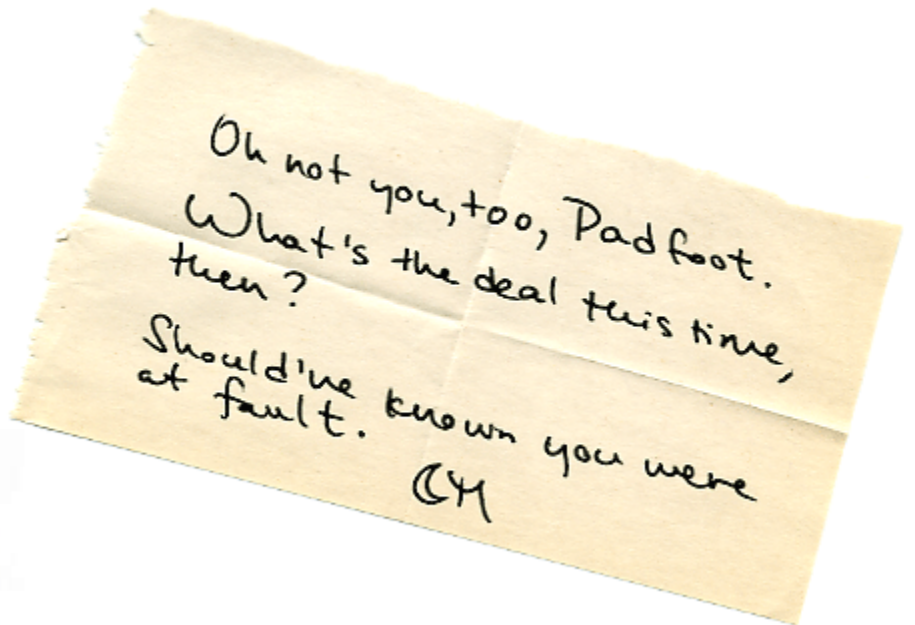 Oh not you, too, Padfoot.
What's the deal this time,
then?
Should've known you were
at fault.
☾M